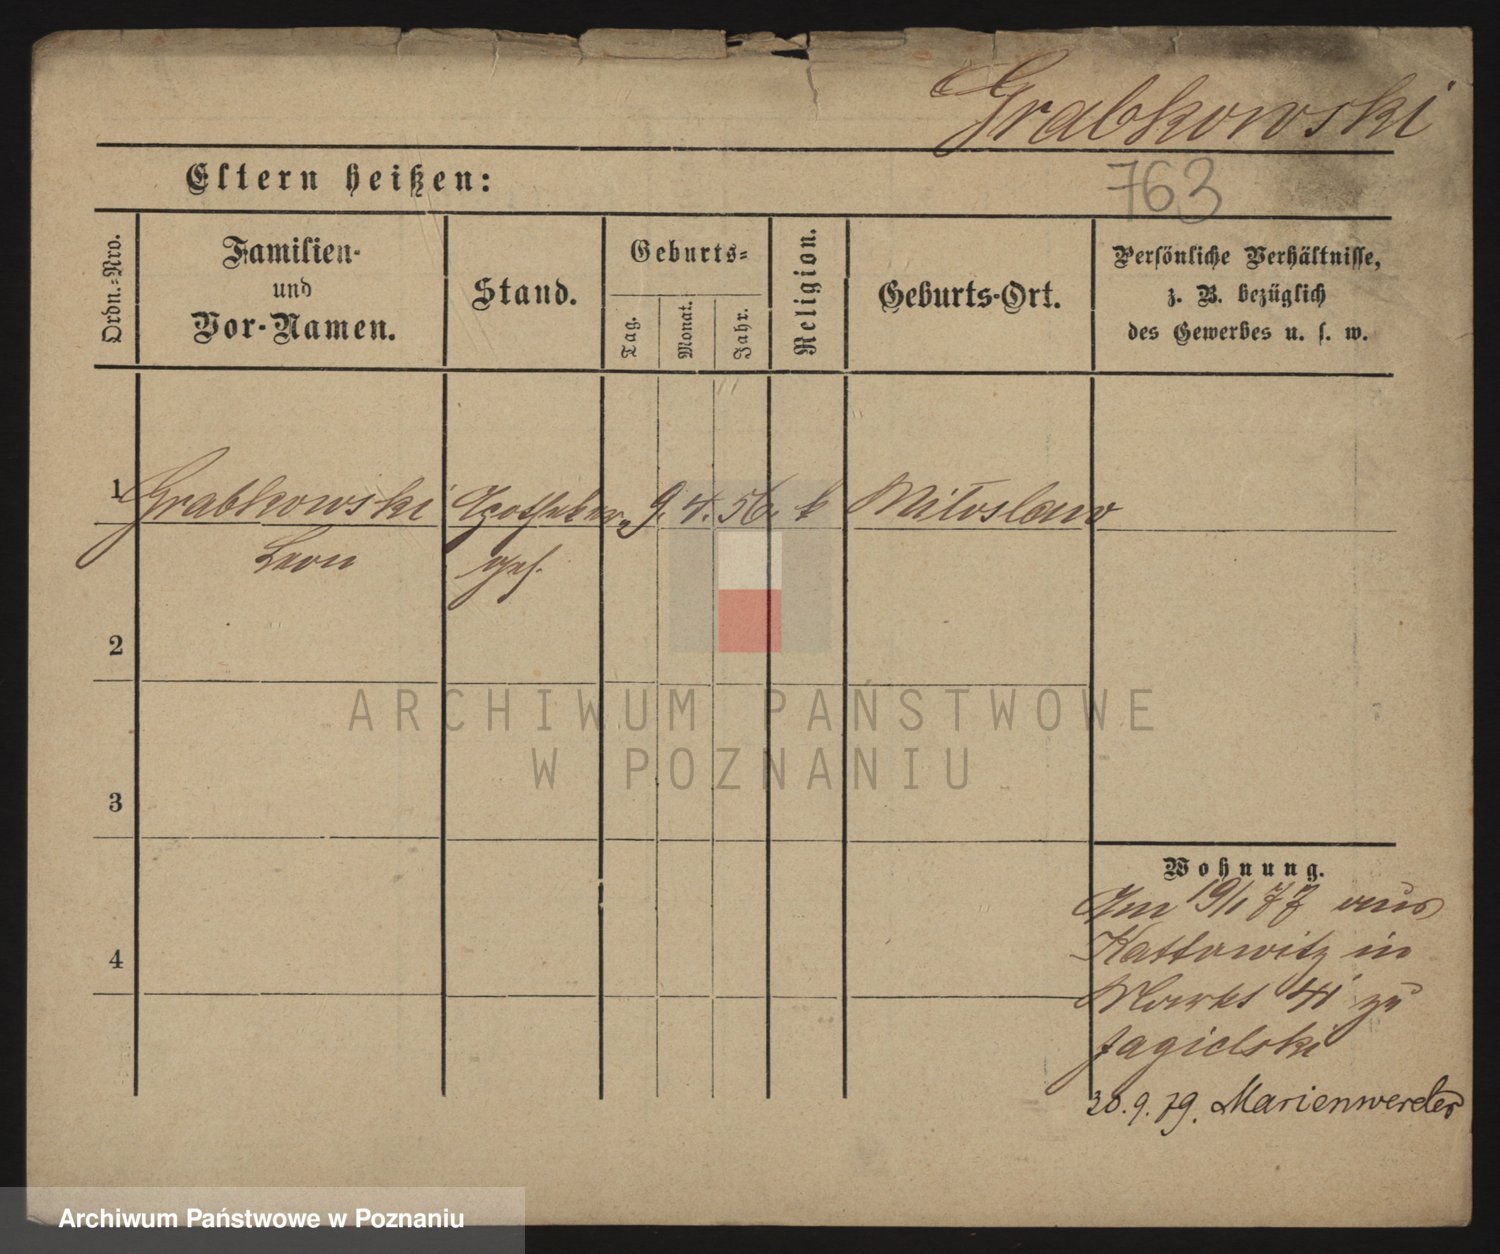 Grabkowski
763
Eltern heißen:
Ordn.-Nro.
Familien-
und
Vor-Namen.
Stand.
Geburts-
Tag.
Monat.
Jahr.
Religion.
Geburts-Ort.
Persönliche Verhältnisse,
z. B. bezüglich
des Gewerbes u. s. w.
1 Grabkowski Apotheker 9. 4. 56. k Miłoslaw
Leon
2
3
4
Wohnung.
Am 19/1 77 aus
Kattowitz in
Markt 41 zu
Jagielski
20. 9. 79. Marienwerder
ARCHIWUM PAŃSTWOWE
W POZNANIU
Archiwum Państwowe w Poznaniu